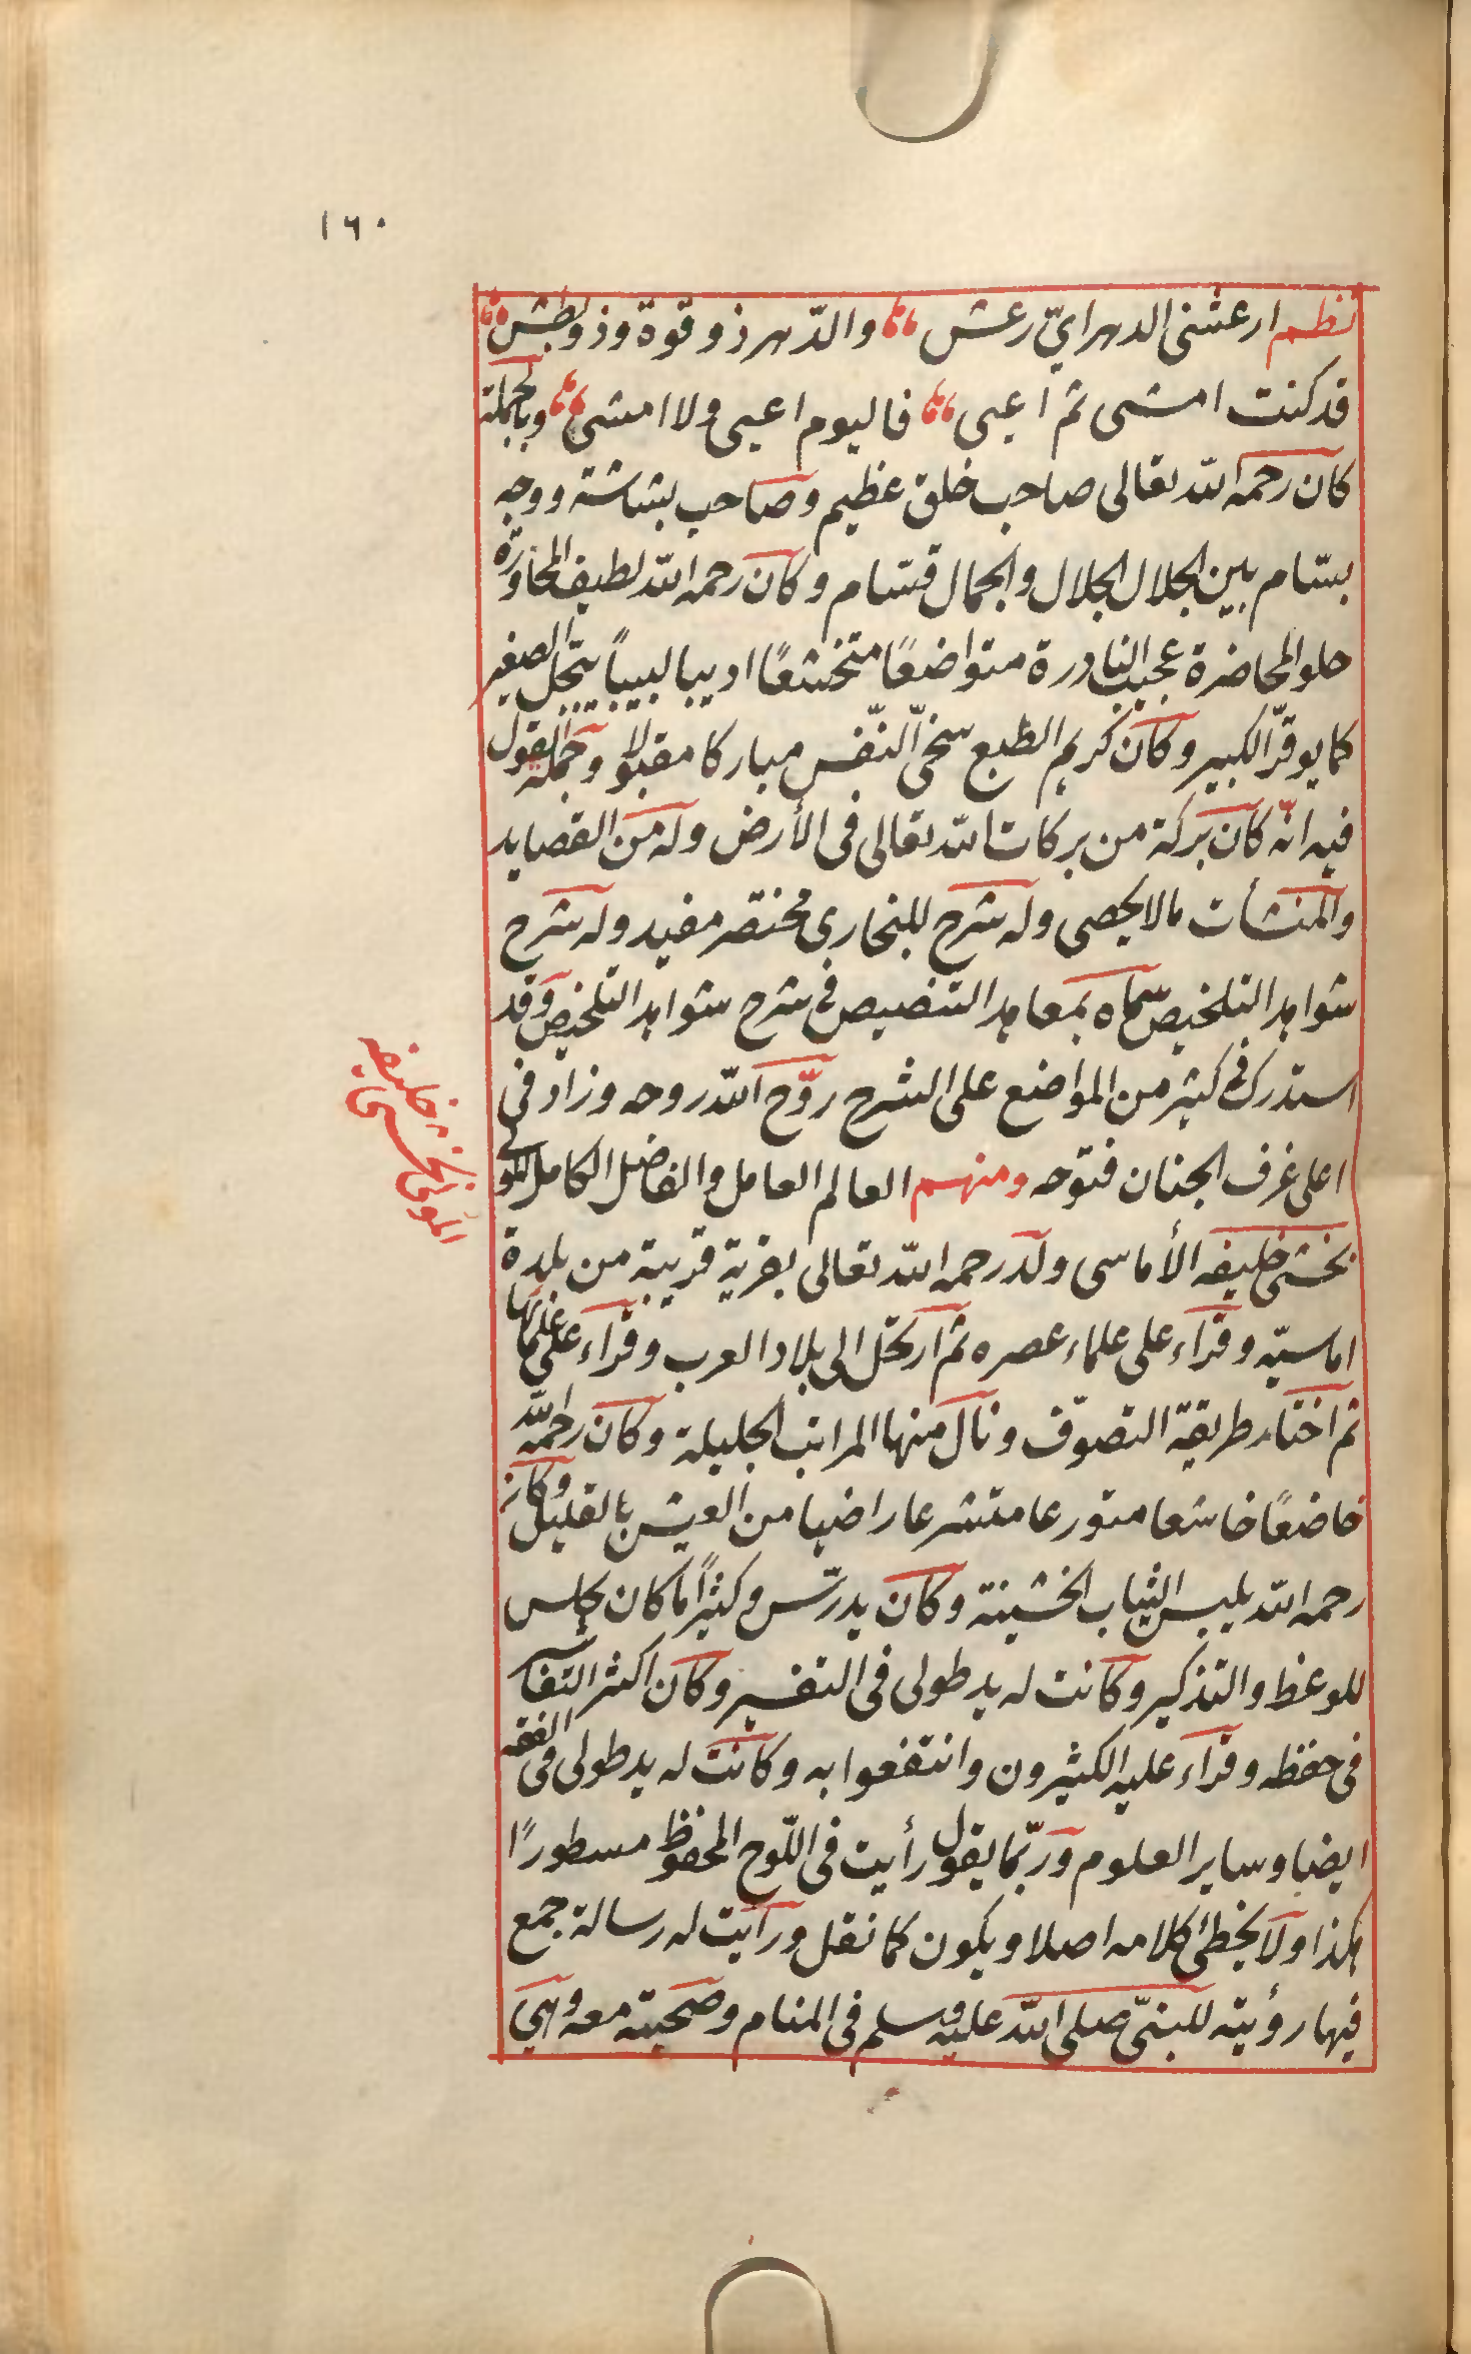 ١٦٠
نظم ارعشنى الدهر اىّ رعش والدّهر ذو قوة وذو بطش
قد كنت امشى ثم اعيى فاليوم اعيى ولا امشى وبالجملة
كان رحمه الله تعالى صاحب خلق عظيم وصاحب بشاشة ووجه
بسّام بين الجلال الجلال والجمال قسّام وكان رحمه الله لطيف المحاورة
حلو المحاضرة عجيب النادرة متواضعًا متخشعًا اديبا لبيباً يبجل الصغير
كما يوقّر الكبير وكان كريم الطبع سخىّ النّفس مباركا مقبولا وجملة القول
فيه انّه كان بركة من بركات الله تعالى فى الأرض وله من القصايد
والمنشأت ما لا يحصى وله شرح للبخارى مختصر مفيد وله شرح
شواهد التلخيص سمّاه بمعاهد التنصيص فى شرح شواهد التلخيص وقد
استدرك فى كثير من المواضع على الشرح روّح الله روحه وزاد فى
اعلى غرف الجنان فتوحه ومنهم العالم العامل والفاضل الكامل المولى
بخشى خليفه الأماسى ولد رحمه الله تعالى بقرية قريبة من بلدة
اماسيّه وقرأء على علماء عصره ثم ارتحل الى بلاد العرب وقرأء على علمائها
ثم اختار طريقة التصوّف ونال منها المراتب الجليلة وكان رحمه الله
خاضعًا خاشعا متورعا متشرعا راضيا من العيش بالقليل وكان
رحمه الله يلبس الثياب الخشينة وكان يدرّس وكثيرًا ما كان يجلس
للوعظ والتذكير وكانت له يد طولى فى التفسير وكان اكثر التفاسير
فى حفظه وقرأء عليه الكثيرون وانتفعوا به وكانت له يد طولى فى الفقه
ايضا وساير العلوم وربّما يقول رأيت فى اللّوح المحفوظ مسطورًا
هكذا ولا يخطئ كلامه اصلا ويكون كما نقل ورأيت له رسالة جمع
فيها رؤيته للنبىّ صلى الله عليه وسلم فى المنام وصحبته معه وهى
المولى بخشى خليفه